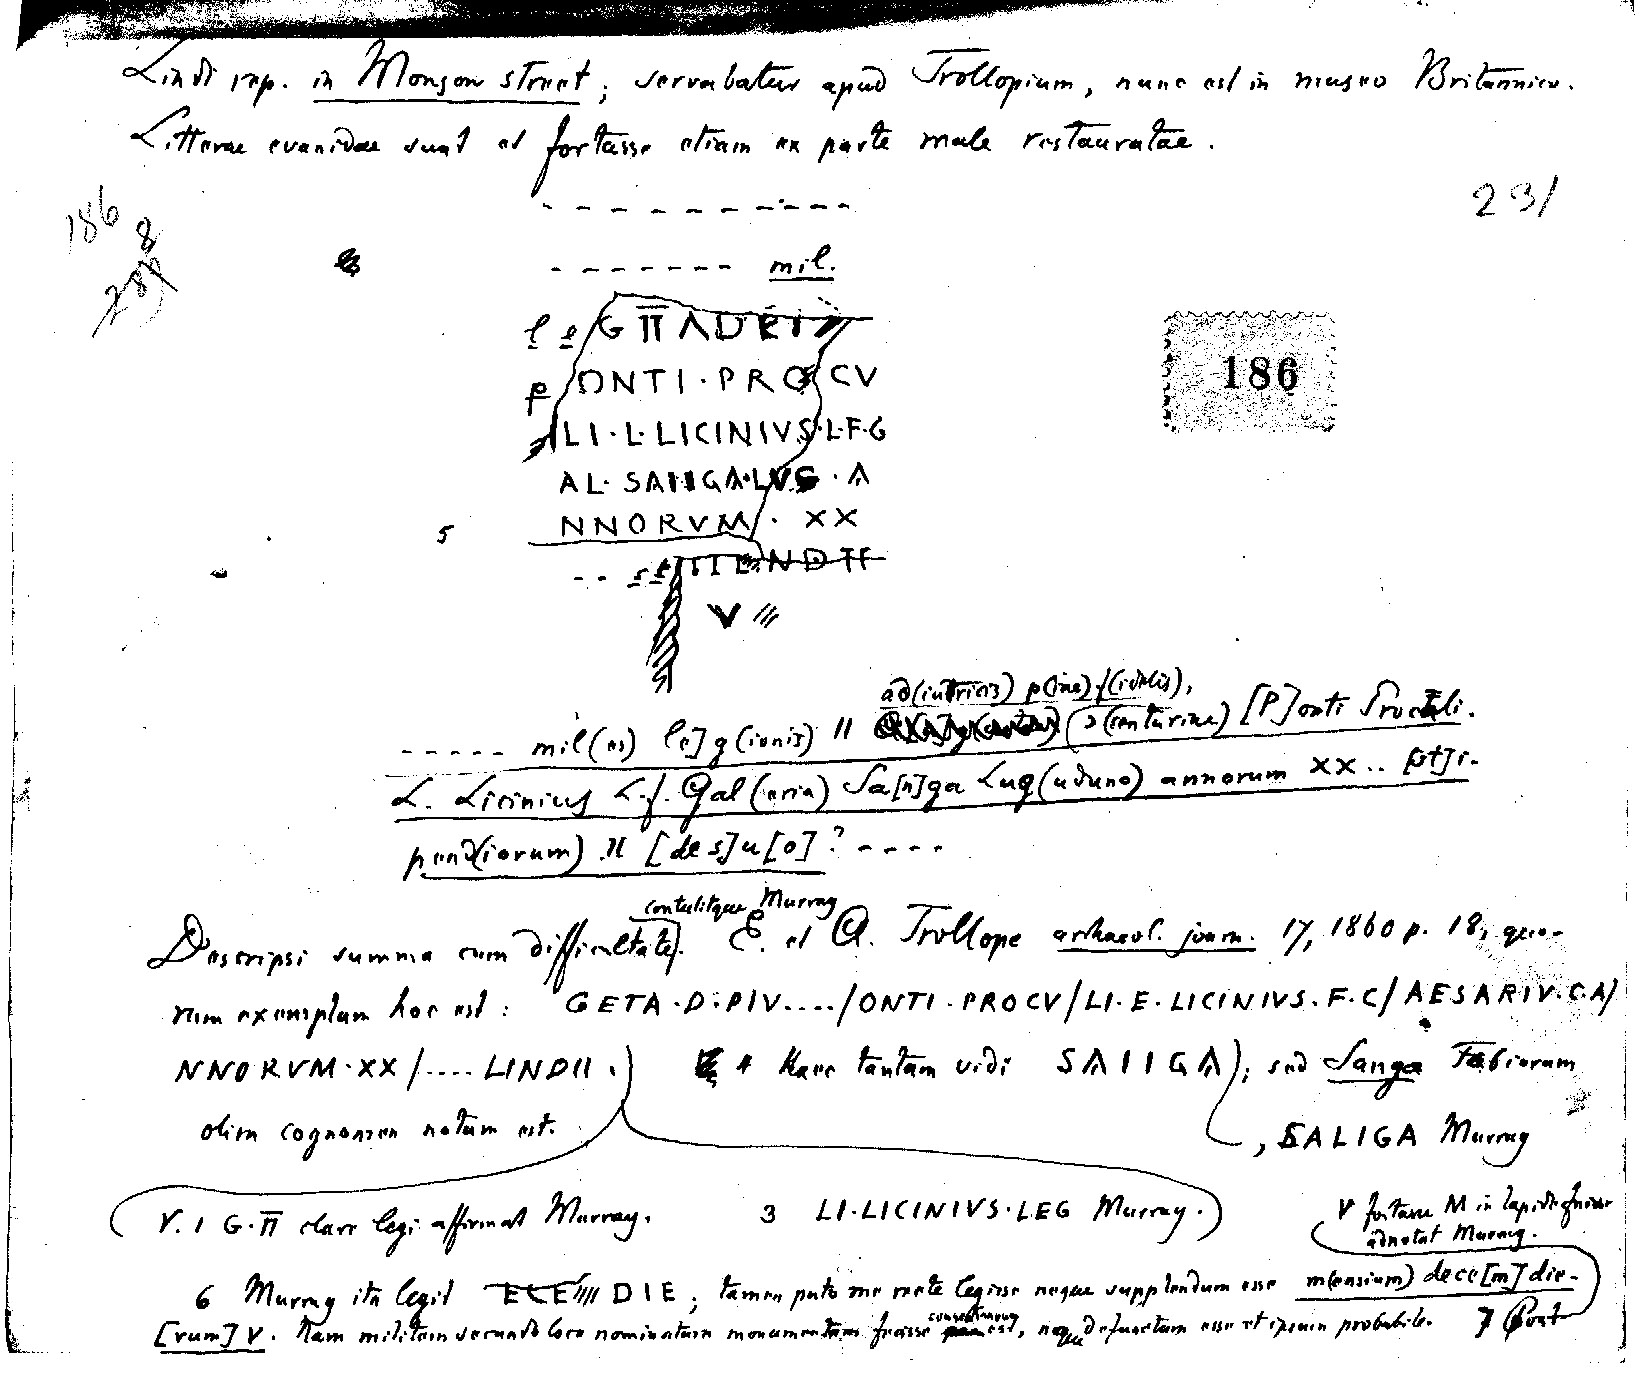 Lindi rep. in Monson street; servabatur apud Trollopium, nunc est in museo Britannico.
Litterae evanidae sunt et fortasse etiam ex parte male restauratae.
186
8
231
mil.
l e G II ADEI
186
p ONTI · PRO CV
LI · L · LICINIVS · L · F · G
AL · SAIIGA · LVG · A
5 NNORVM · XX
V
ad(iutricis) p(iae) f(idelis),
mil(es) le]g(ionis) II Ɔ(centuriae) [P]onti Proculi.
L. Licinius L. f. Gal(eria) Sa[n]ga Lug(uduno) annorum XX .. [st]i-
pend(iorum) II [de s]u[o]?
contulitque Murray
Descripsi summa cum difficultate. E. et A. Trollope archaeol. journ. 17, 1860 p. 18, quo-
rum exemplum hoc est: GETA · D · PIV..../ONTI · PROCV/LI · E · LICINIVS · F · C/AESARIV · C · A/
NNORVM · XX/.... LINDII . 4 Haec tantum vidi SAIIGA; sed Sanga Fabiorum
olim cognomen notum est. , SALIGA Murray
V. 1 G · II clare legi affirmat Murray. 3 LI · LICINIVS · LEG Murray.
V fortasse M in lapide fuisse
adnotat Murray.
6 Murray ita legit ECE //// DIE; tamen puto me recte legisse neque supplendum esse m(ensium) dece[m] die-
[rum] V. Nam militem secundo loco nominatum monumentum fecisse consentaneum est, neque defunctum esse et ipsum probabile. 7 Post